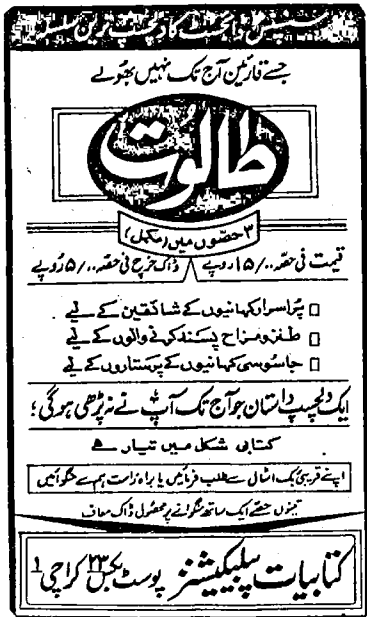 سسپنس ڈائجسٹ کا دلچسپ ترین سلسلہ
جسے قارئین آج تک نہیں بھولے
طالوت
۳ حصوں میں (مکمل)
قیمت فی حصہ ../۱۵ روپے ڈاک خرچ فی حصہ ../۵ روپے
پراسرار کہانیوں کے شائقین کے لیے
طنز و مزاح پسند کرنے والوں کے لیے
جاسوسی کہانیوں کے پرستاروں کے لیے
ایک دلچسپ داستان جو آج تک آپ نے نہ پڑھی ہوگی؛
کتابی شکل میں تیار ہے
اپنے قریبی بک اسٹال سے طلب فرمائیں یا براہ راست ہم سے منگوائیں
تینوں حصے ایک ساتھ منگوانے پر محصول ڈاک معاف
کتابیات پبلیکیشنز پوسٹ بکس ۲۳ کراچی ۱